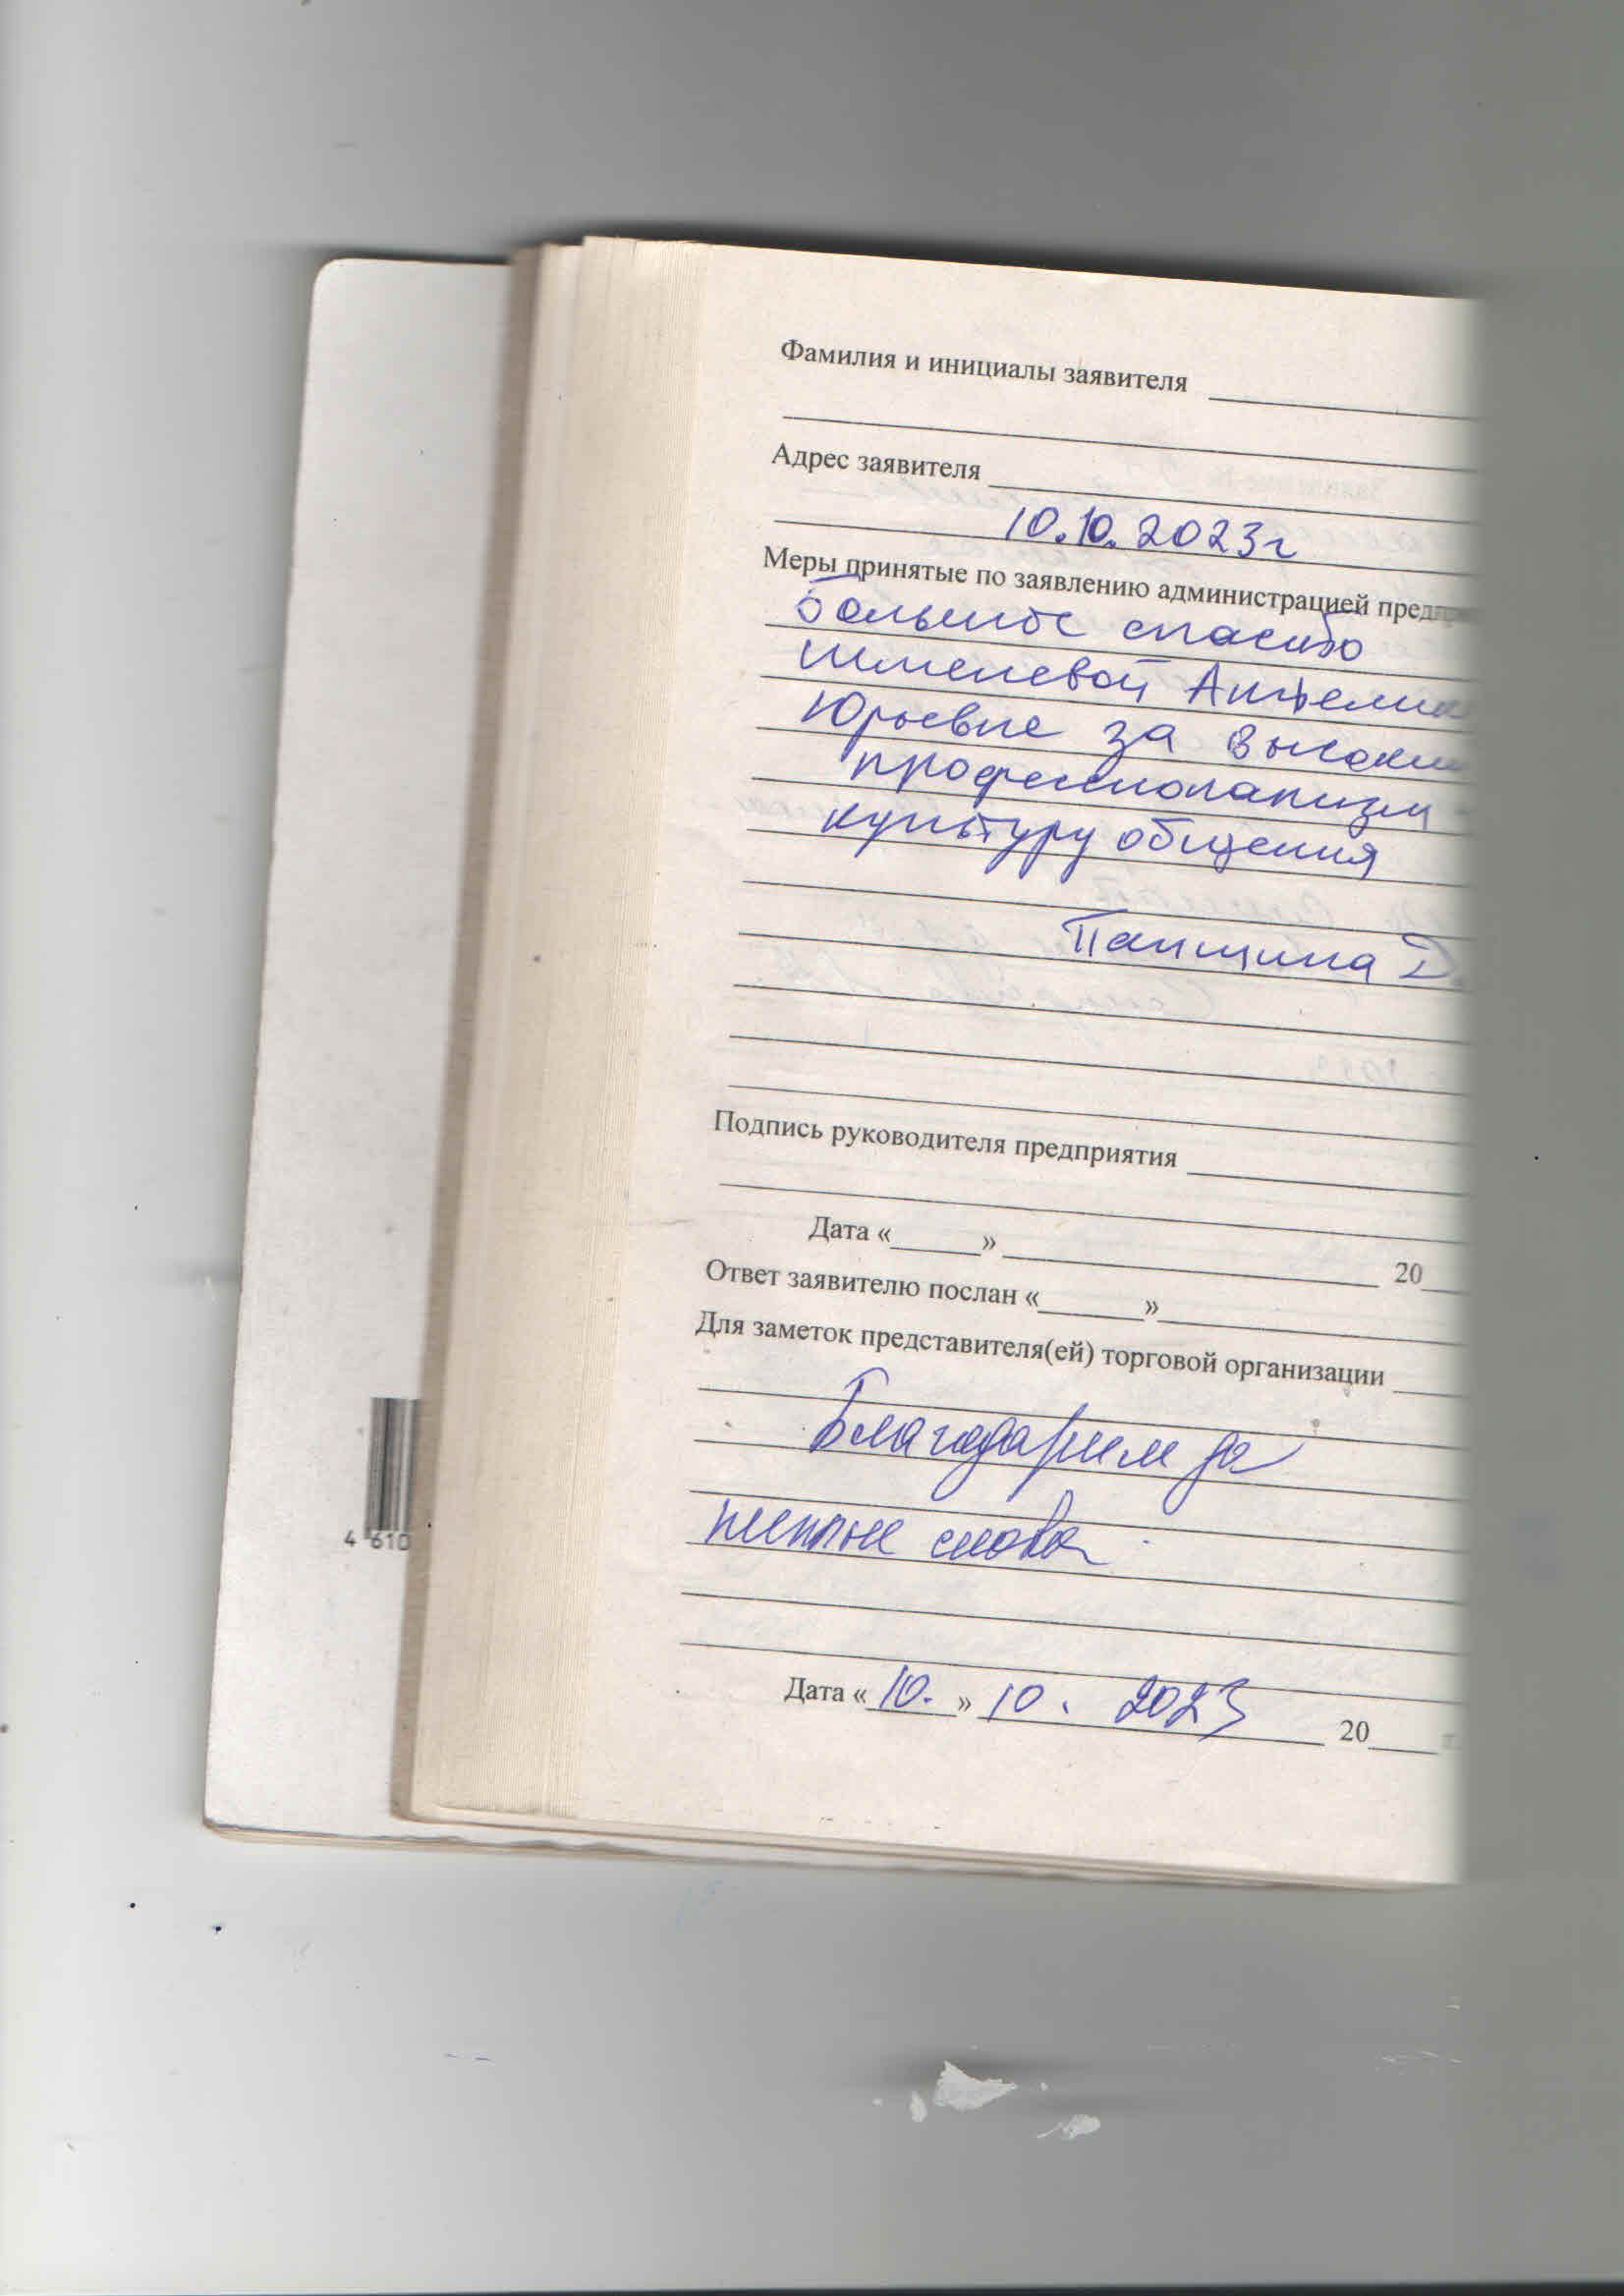 Фамилия и инициалы заявителя
Адрес заявителя
10.10.2023г
Меры принятые по заявлению администрацией
большое спасибо
Шмелевой
Юрьевне за
профессионализм
культуру общения
Панщина Д.
Подпись руководителя предприятия
Дата «______» ______ 20__
Ответ заявителю послан «______» ______
Для заметок представителя(ей) торговой организации
Благодарим за
теплые слова
Дата «10.» 10. 2023 20__
4 610